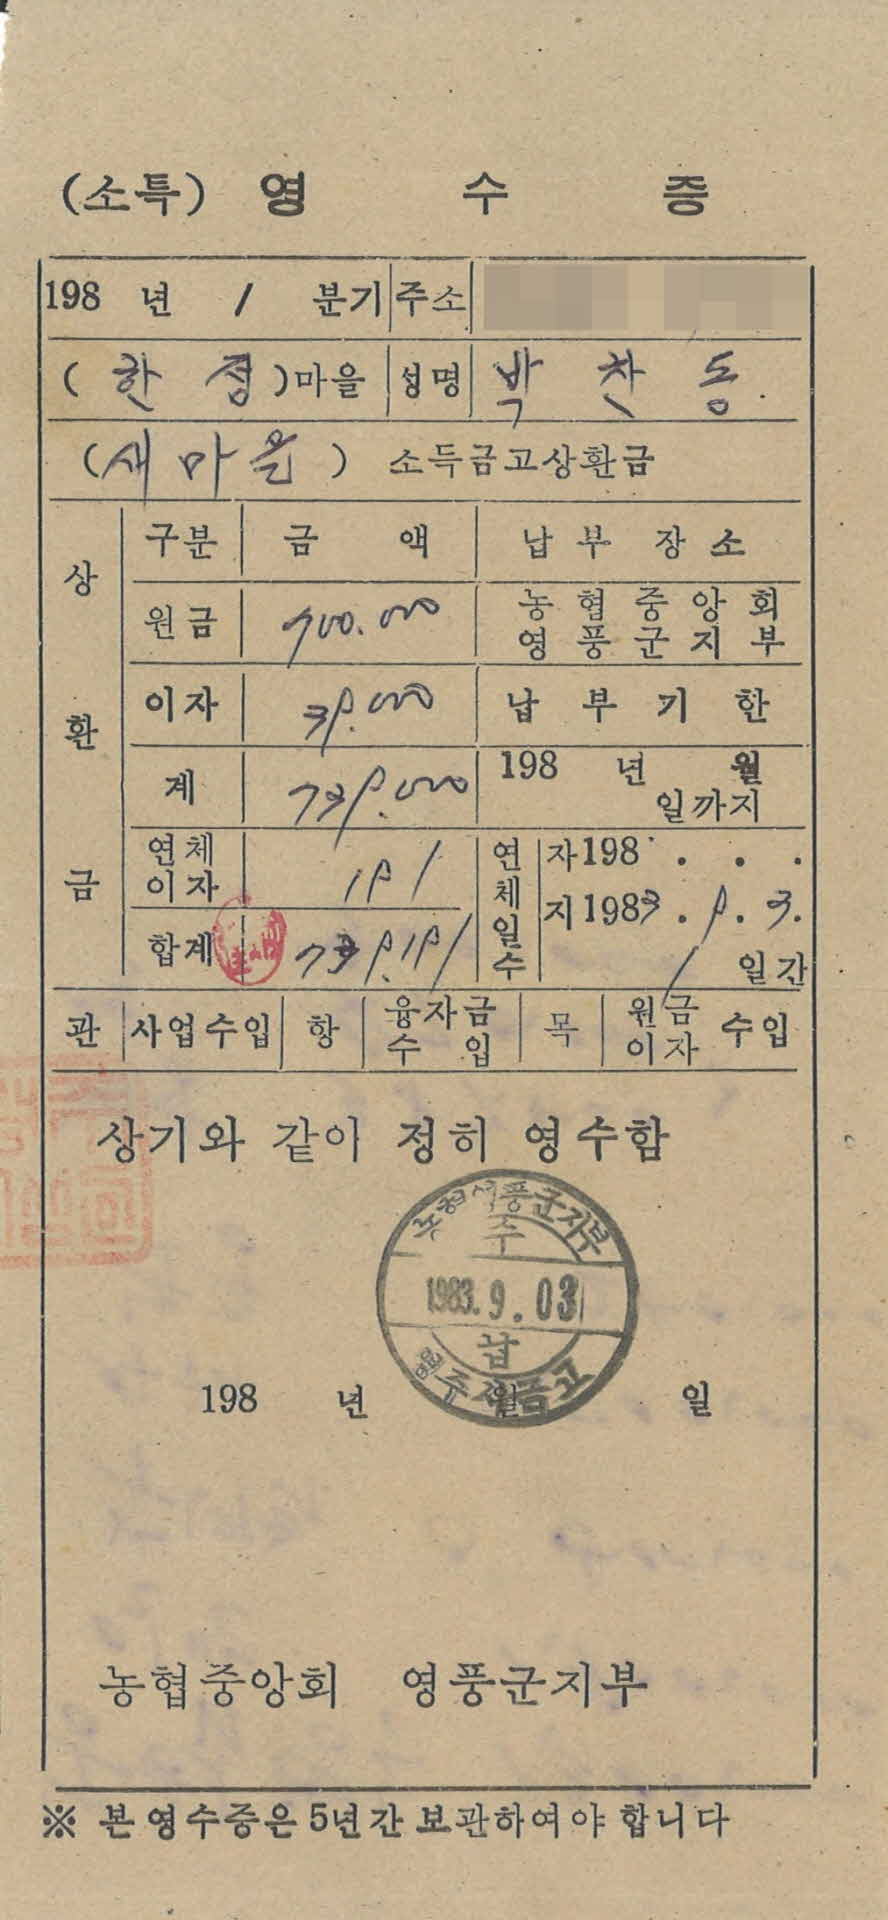 (소특) 영 수 증
198 년 1 분기 주소
(한 정)마을 성명 박 찬 동
(새마을) 소득금고상환금
상환금 구분 금 액 납 부 장 소
원금 700.000 농협중앙회 영풍군지부
이자 39.000 납 부 기 한
계 739.000 198 년 월 일까지
연체이자 191 연체일수 자198 . . .
합계 739.191 지1983. 9. 3.
1 일간
관 사업수입 항 융자금수입 목 원금이자 수입
상기와 같이 정히 영수함
농협영풍군지부
수
1983.9.03
납
198 년 월 일
농협중앙회 영풍군지부
※ 본 영수증은 5년간 보관하여야 합니다